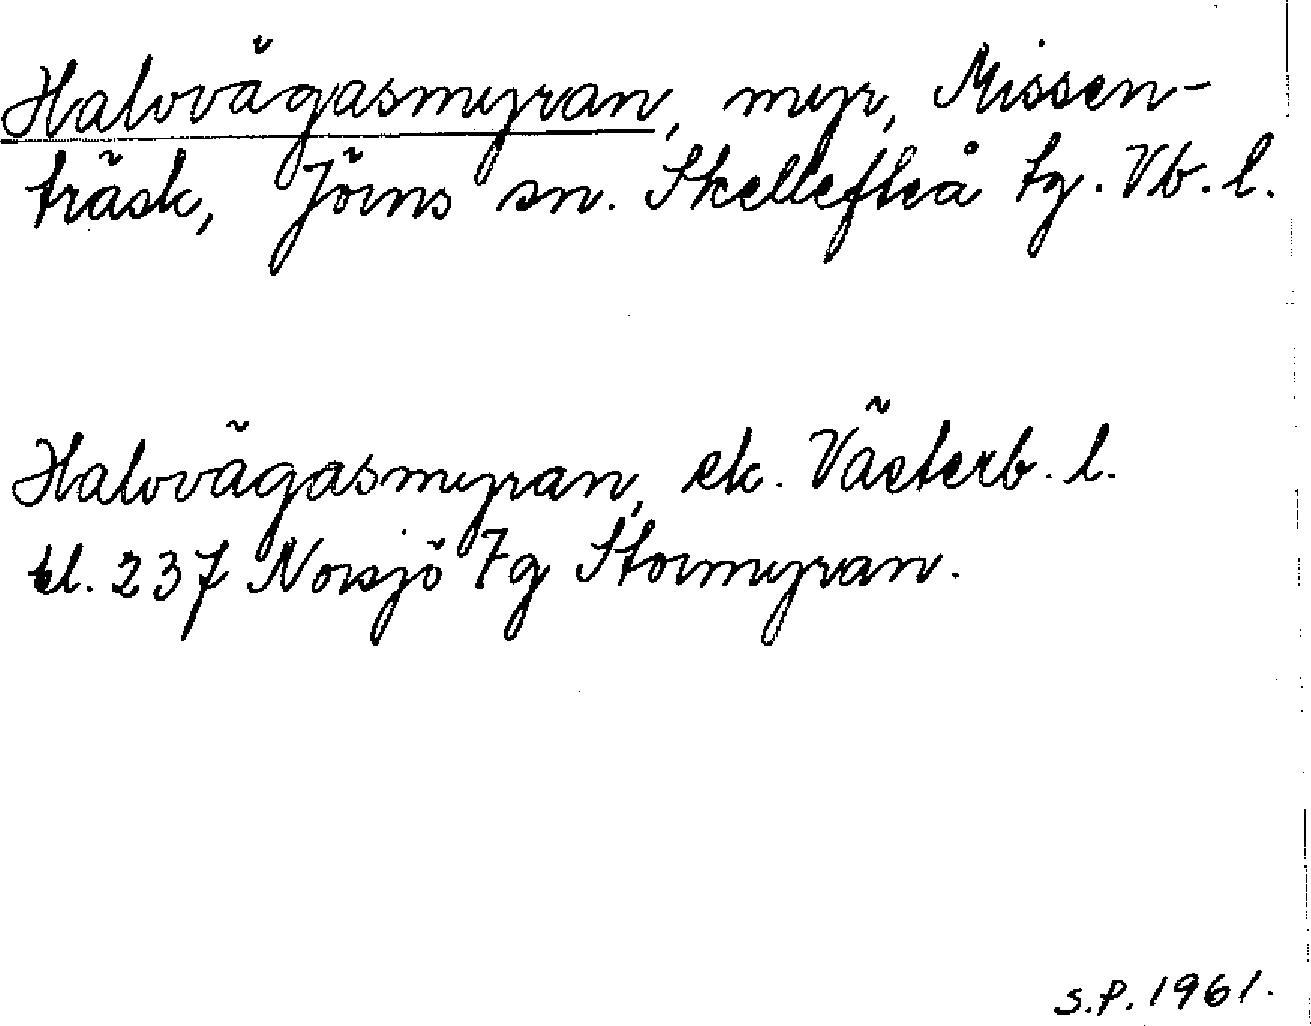 Halvvägasmyran, myr, Missen-
träsk, Jörns sn. Skellefteå tg. Vb. l.
Halvvägasmyran, ek. Västerb. l.
bl. 237 Norsjö 7g Stormyran.
S.P. 1961.